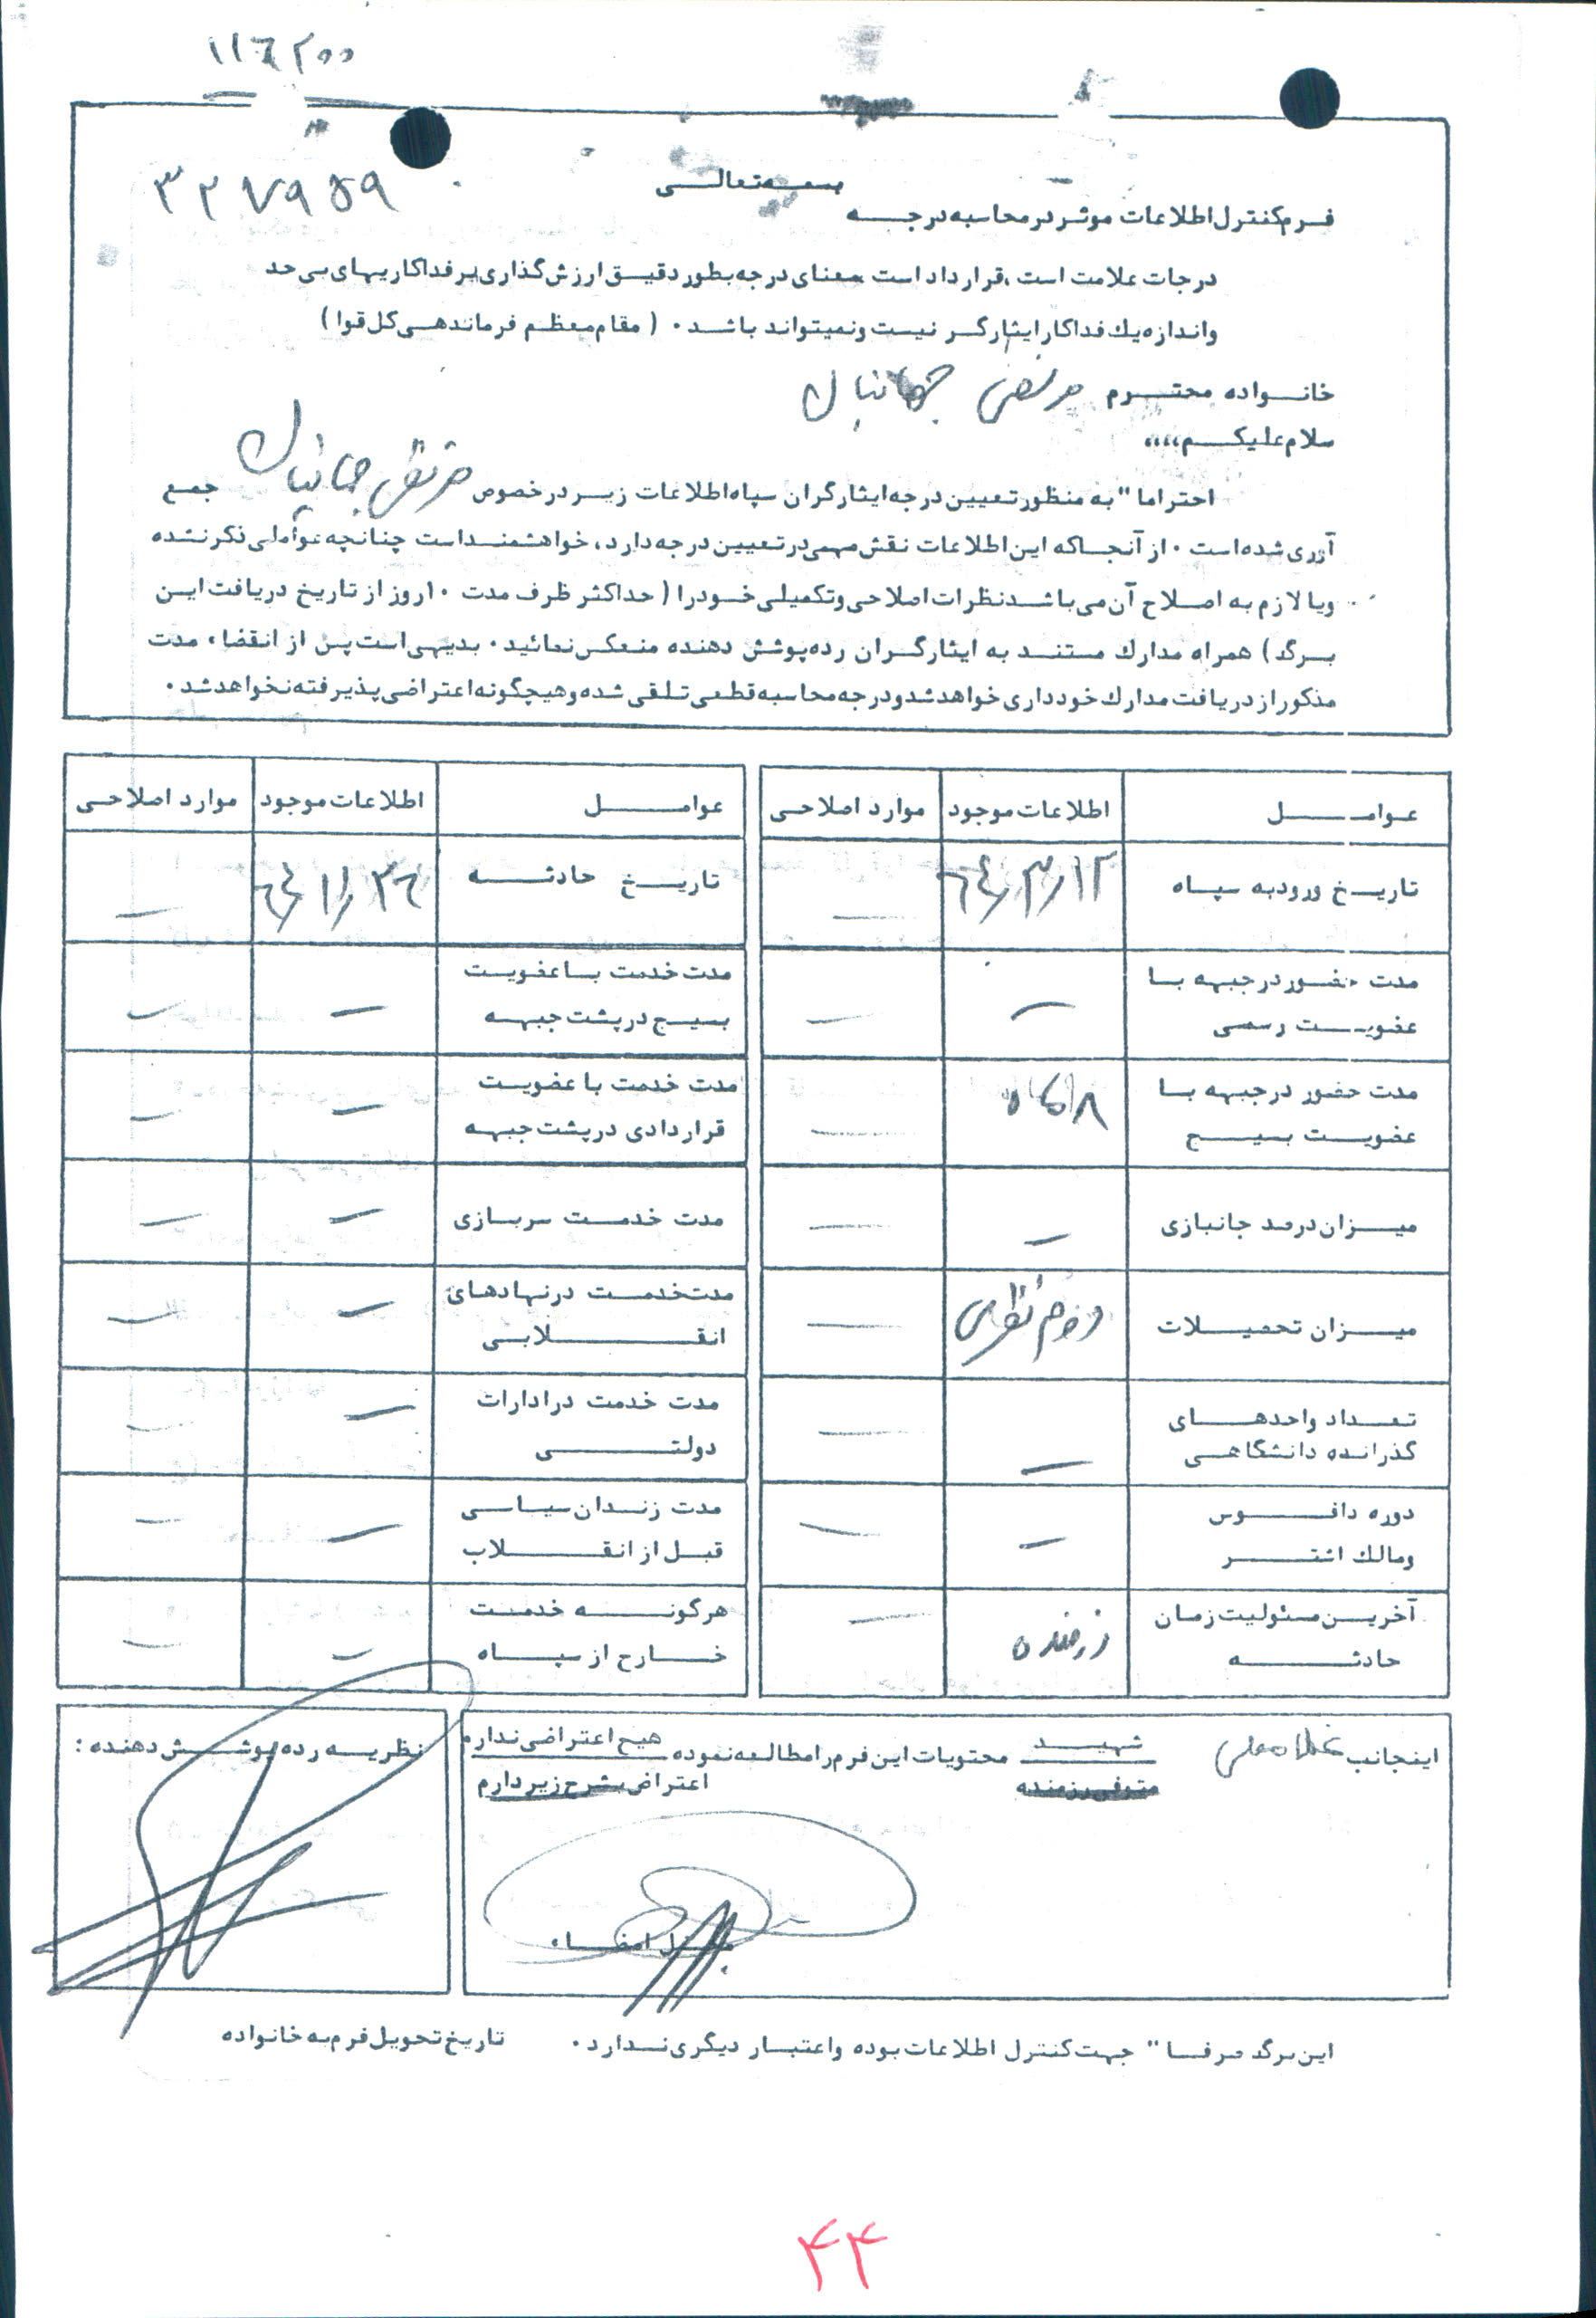 ۱۱٦۲۰۰
۳۲۷۹۵۹
بسمه تعالی
فرم کنترل اطلاعات موثر در محاسبه درجه
درجات علامت است ، قرارداد است معنای درجه بطور دقیق ارزش گذاری بر فداکاریهای بی حد
و اندازه یک فداکار ایثارگر نیست و نمیتواند باشد . ( مقام معظم فرماندهی کل قوا )
خانواده محترم مرتضی جهانیان
سلام علیکم ،،،،
احتراما" به منظور تعیین درجه ایثارگران سپاه اطلاعات زیر در خصوص مرتضی جهانیان جمع
آوری شده است . از آنجا که این اطلاعات نقش مهمی در تعیین درجه دارد ، خواهشمند است چنانچه عواملی ذکر نشده
و یا لازم به اصلاح آن می باشد نظرات اصلاحی و تکمیلی خود را ( حداکثر ظرف مدت ۱۰ روز از تاریخ دریافت این
برگه ) همراه مدارک مستند به ایثارگران رده پوشش دهنده منعکس نمائید . بدیهی است پس از انقضاء مدت
مذکور از دریافت مدارک خودداری خواهد شد و درجه محاسبه قطعی تلقی شده و هیچگونه اعتراضی پذیرفته نخواهد شد .
عوامل اطلاعات موجود موارد اصلاحی
تاریخ ورود به سپاه ٦٤/۳/۱۲ —
مدت حضور در جبهه با
عضویت رسمی — —
مدت حضور در جبهه با
عضویت بسیج ۸ ماه —
میزان درصد جانبازی — —
میزان تحصیلات دوم نظری —
تعداد واحدهای
گذرانده دانشگاهی — —
دوره دافوس
و مالک اشتر — —
آخرین مسئولیت زمان
حادثه رزمنده —
عوامل اطلاعات موجود موارد اصلاحی
تاریخ حادثه ٦٤/۱۱/۲٦ —
مدت خدمت با عضویت
بسیج در پشت جبهه — —
مدت خدمت با عضویت
قراردادی در پشت جبهه — —
مدت خدمت سربازی — —
مدت خدمت در نهادهای
انقلابی — —
مدت خدمت در ادارات
دولتی — —
مدت زندان سیاسی
قبل از انقلاب — —
هرگونه خدمت
خارج از سپاه — —
اینجانب غلامعلی شهید محتویات این فرم را مطالعه نموده هیچ اعتراضی ندارم
متوفی رزمنده اعتراض بشرح زیر دارم
محل امضاء
نظریه رده پوشش دهنده :
این برگه صرفا" جهت کنترل اطلاعات بوده و اعتبار دیگری ندارد . تاریخ تحویل فرم به خانواده
۴۴